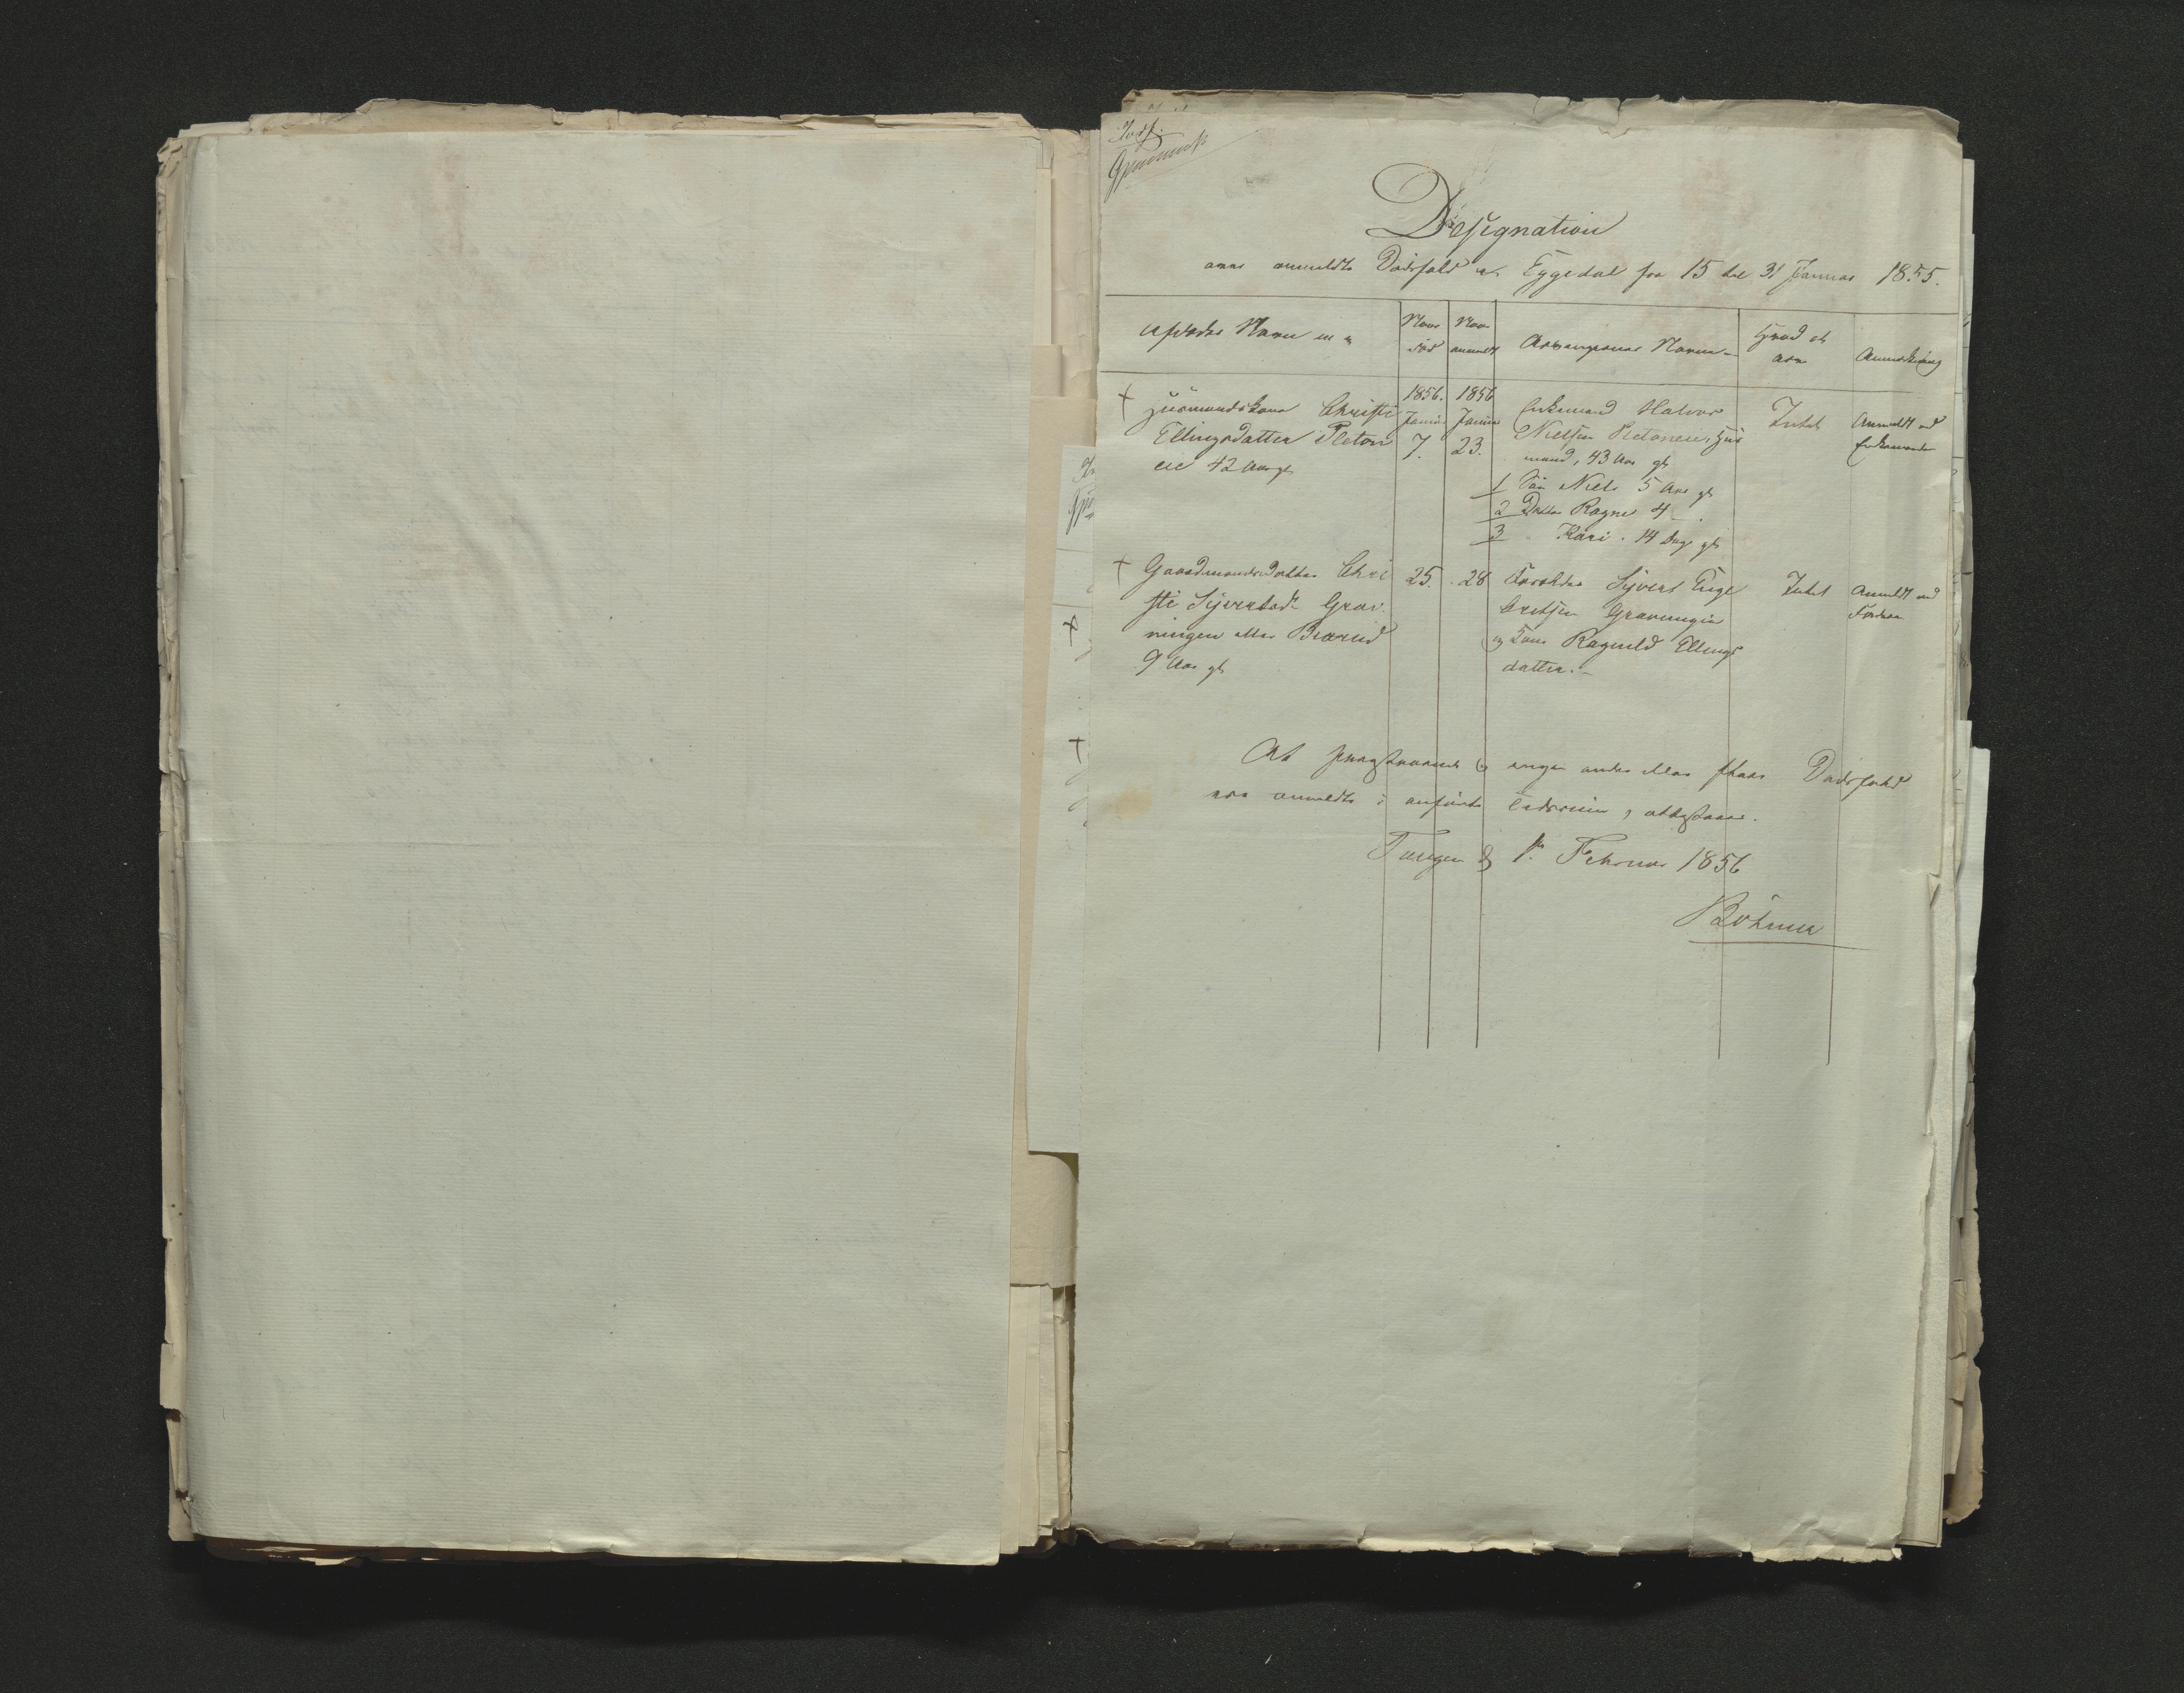 Designation
over anmeldte Dødsfald i Eggedal fra 15 til 31 Januar 1855.
Afdødes Navn m m
Naar død
Naar anmeldt
Arvingernes Navne
Hvad et arv
Anmærkning
+ Huusmandskone Christi
Ellingsdatter Pleton
eie 42 Aar gl
1856. Januar 7.
1856 Januar 23.
Enkemand Halvor
Nielsen Pletoneie, Huus
mand, 43 Aar gl
1 Søn Niels 5 Aar gl
2 Datter Ragne 4 -
3 " Kari . 14 Dage gl
Intet
Anmeldt ved
Enkemanden
+ Gaardmandsdatter Chri
sti Syversdr Grav
ningen eller Braarud
9 Aar gl
25.
28
Forældre Syvert Enge
bretsen Gravningen
og Kone Ragnild Ellings
datter. -
Intet
Anmeldt ved
Faderen
At foregstaaende og ingen andre eller flere Dødsfald
ere anmeldte i anførte Tidsrum, attesteres.
Tangen d 1. Februar 1856
Böhmer